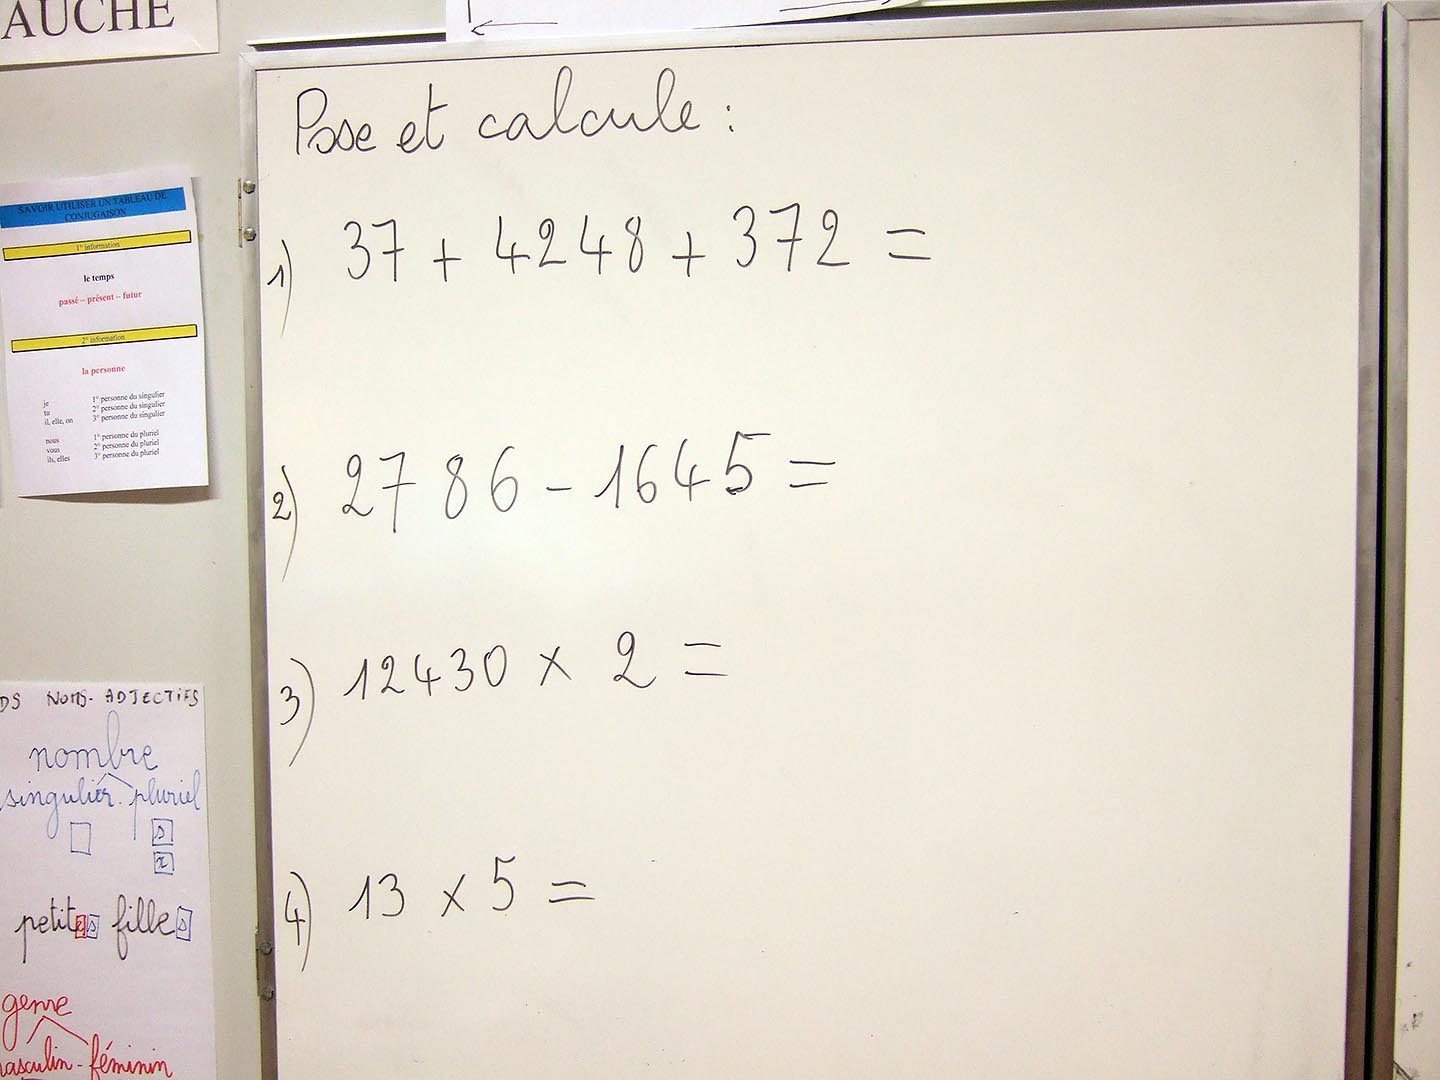 AUCHE
SAVOIR UTILISER UN TABLEAU DE
CONJUGAISON
1° information
le temps
passé – présent – futur
2° information
la personne
je 1° personne du singulier
tu 2° personne du singulier
il, elle, on 3° personne du singulier
nous 1° personne du pluriel
vous 2° personne du pluriel
ils, elles 3° personne du pluriel
DS NOMS-ADJECTIFS
nombre
singulier-pluriel
s
x
petites filles
genre
masculin-féminin
Pose et calcule :
1) 37 + 4248 + 372 =
2) 2786 - 1645 =
3) 12430 x 2 =
4) 13 x 5 =